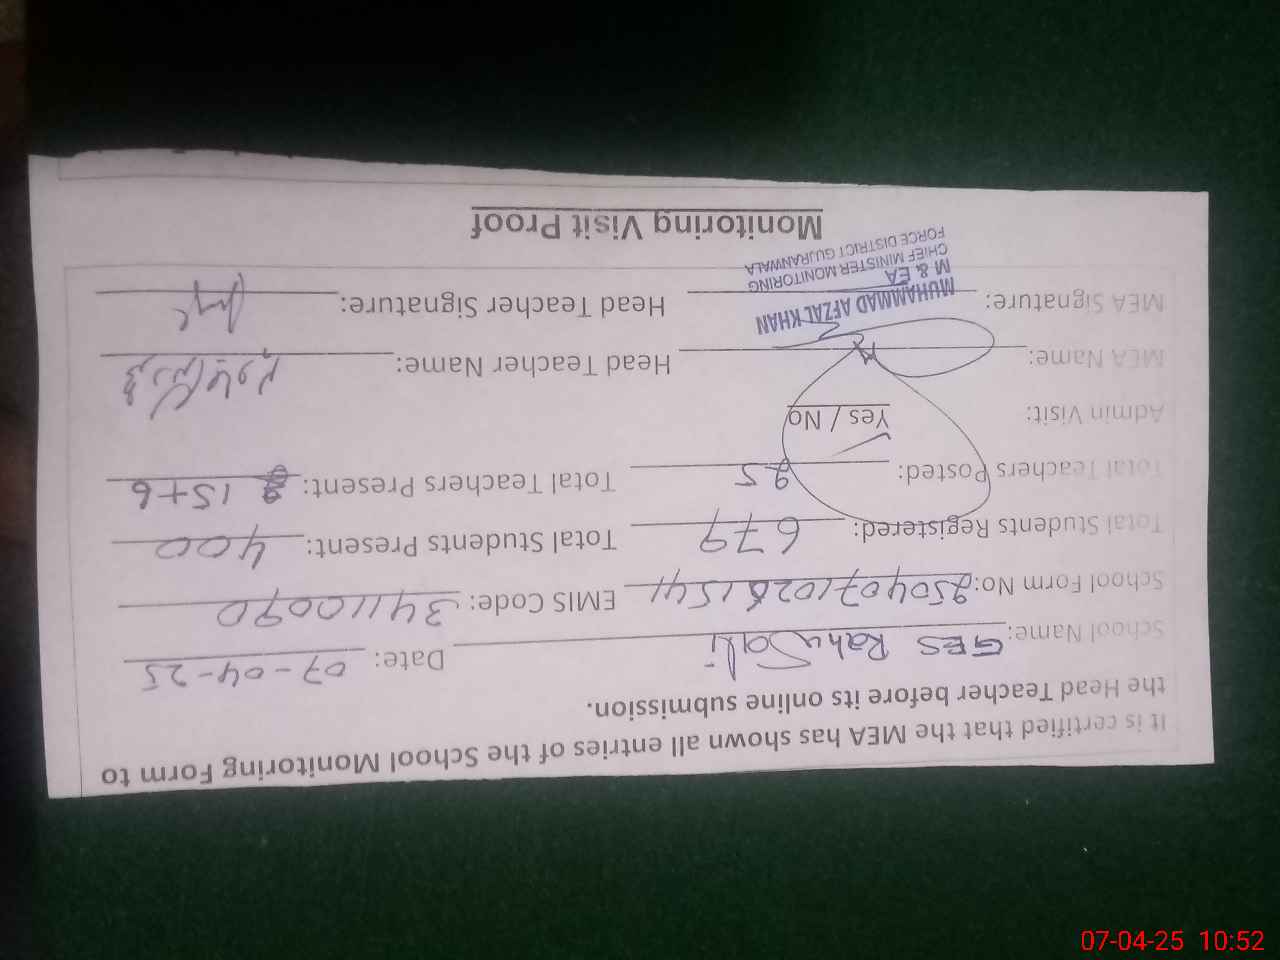 It is certified that the MEA has shown all entries of the School Monitoring Form to
the Head Teacher before its online submission.
School Name: GES Rahu Sali Date: 07-04-25
School Form No: 250407102 1541 EMIS Code: 34110070
Total Students Registered: 679 Total Students Present: 400
Total Teachers Posted: 25 Total Teachers Present: 15+6
Admin Visit: Yes / No
MEA Name: Head Teacher Name:
MEA Signature: Head Teacher Signature:
MUHAMMAD AFZAL KHAN
M & EA
CHIEF MINISTER MONITORING
FORCE DISTRICT GUJRANWALA
Monitoring Visit Proof
07-04-25 10:52